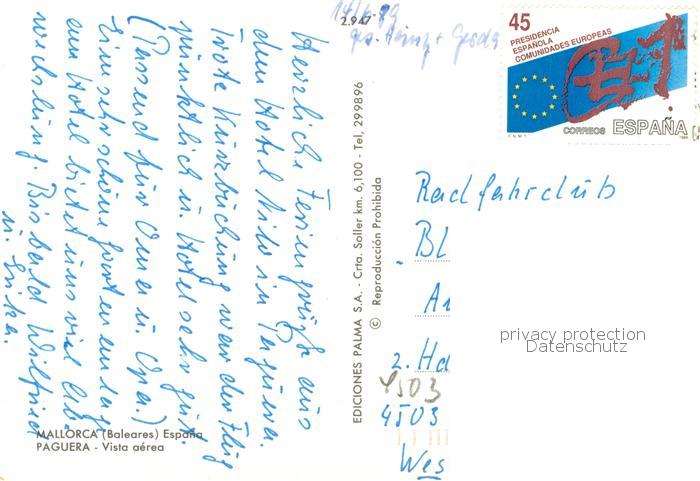 Herzliche Feriengrüße aus
dem Hotel Lido in Paguera.
Trotz Kurzbuchung war der Flug
pünktlich u. Hotel sehr gut.
(Passend für Oma u. Opa.)
Eine sehr schöne Gartenanlage
am Hotel bietet uns viel Ab-
wechslung. Bis bald Wilfried
u. Erika.
MALLORCA (Baleares) España
PAGUERA - Vista aérea
2.947
EDICIONES PALMA S.A. - Crta. Soller km. 6,100 - Tel, 299896
© Reproducción Prohibida
14/6.89
Heinz + Gerda
45
PRESIDENCIA
ESPAÑOLA
COMUNIDADES EUROPEAS
CORREOS ESPAÑA
Radfahrclub
BL
2. Hd
4503
4503
Wes
privacy protection
Datenschutz